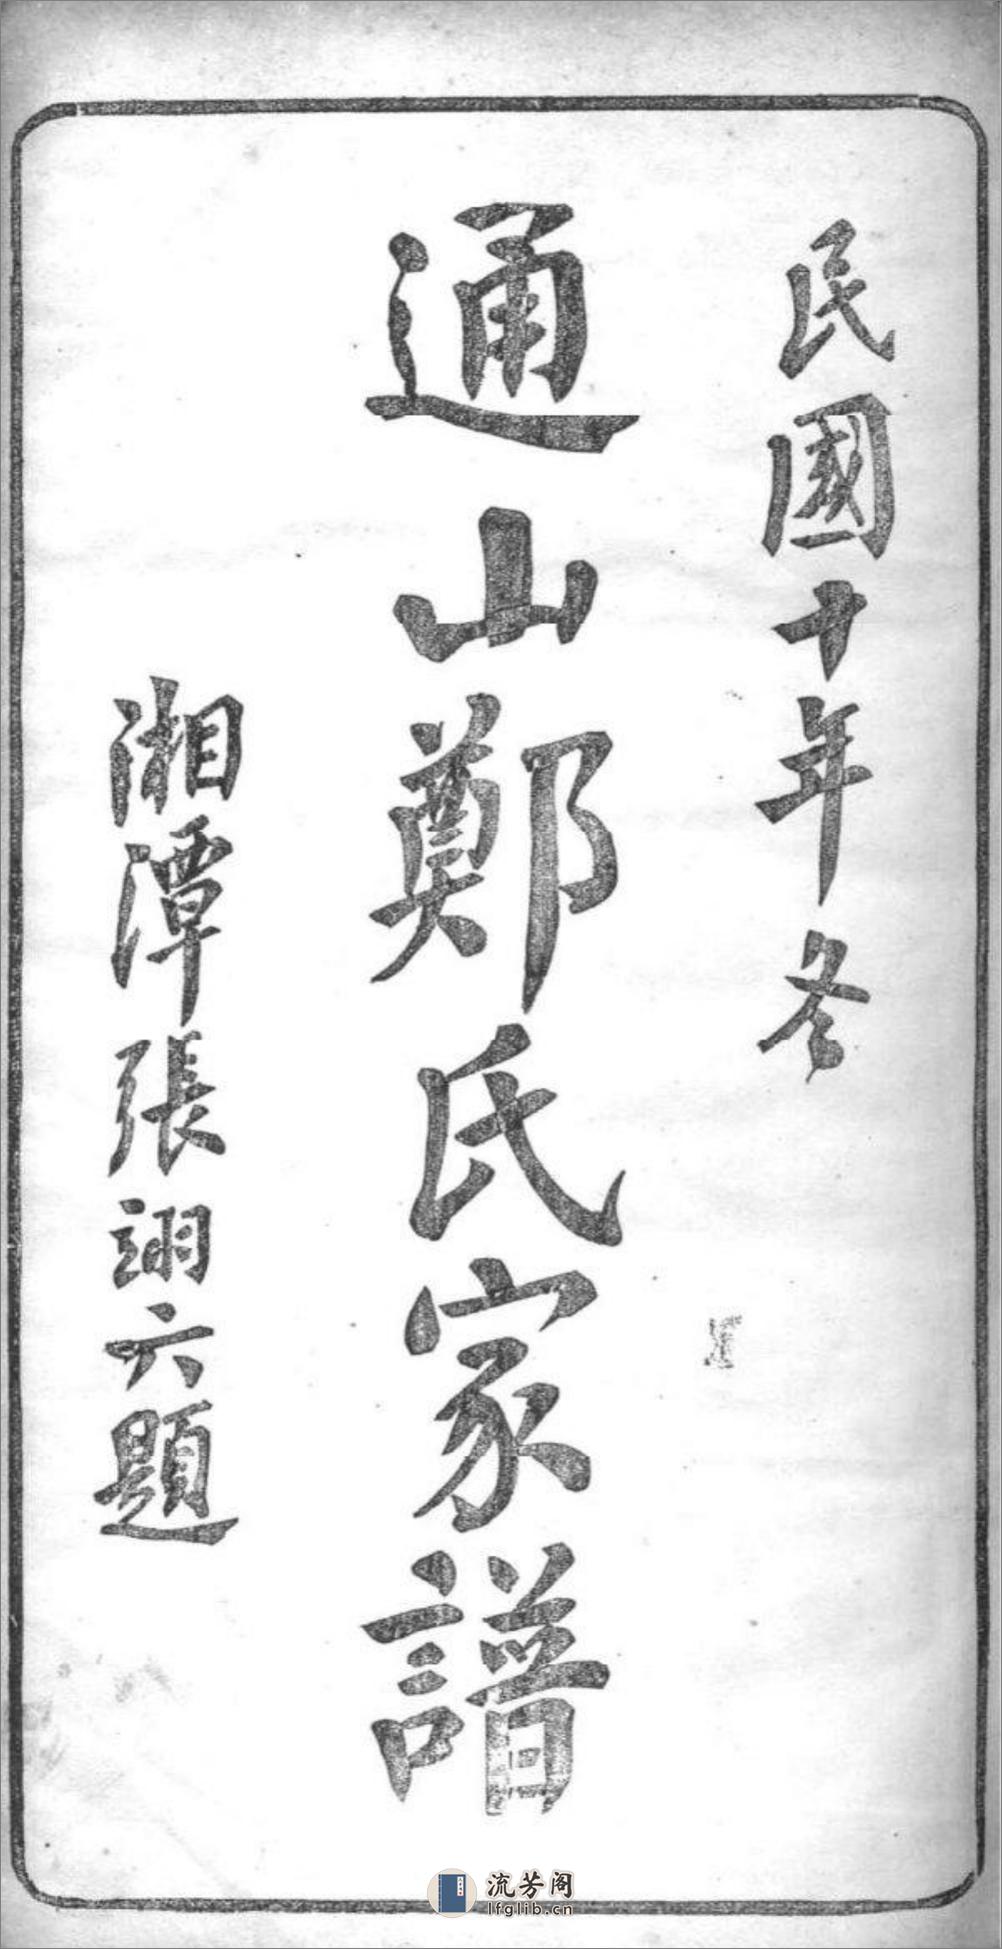 民國十年冬
通山鄭氏家譜
湘潭張翊六題
流芳阁
lfglib.cn